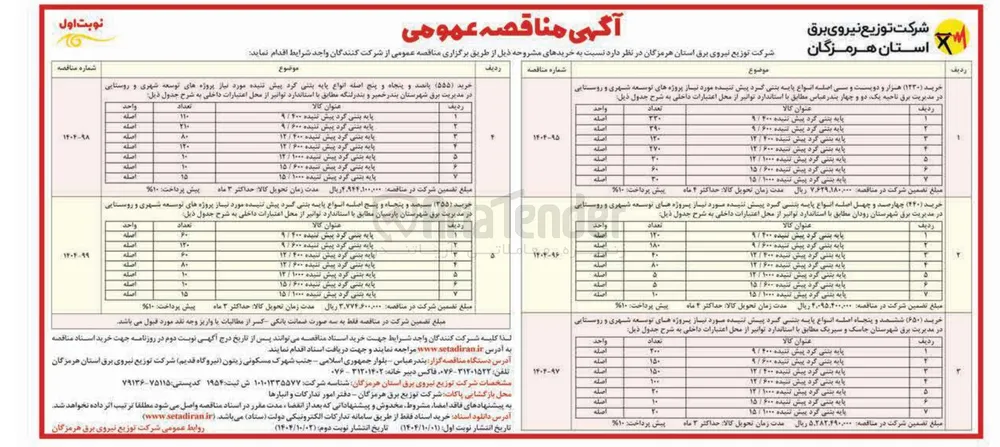 شرکت توزیع نیروی برق
استان هرمزگان
آگهی مناقصه عمومی
نوبت اول
شرکت توزیع نیروی برق استان هرمزگان در نظر دارد نسبت به خریدهای مشروحه ذیل از طریق برگزاری مناقصه عمومی از شرکت کنندگان واجد شرایط اقدام نماید:
ردیف موضوع شماره مناقصه
۱ ۱۴۰۴-۹۵
خرید (۱۲۳۰) هزار و دویست و سی اصله انواع پایه بتنی گرد پیش تنیده مورد نیاز پروژه های توسعه شهری و روستایی
در مدیریت برق ناحیه یک، دو و چهار بندرعباس مطابق با استاندارد توانیر از محل اعتبارات داخلی به شرح جدول ذیل:
ردیف عنوان کالا تعداد واحد
۱ پایه بتنی گرد پیش تنیده ۴۰۰ / ۹ ۳۳۰ اصله
۲ پایه بتنی گرد پیش تنیده ۶۰۰ / ۹ ۳۹۰ اصله
۳ پایه بتنی گرد پیش تنیده ۴۰۰ / ۱۲ ۱۲۰ اصله
۴ پایه بتنی گرد پیش تنیده ۶۰۰ / ۱۲ ۲۷۰ اصله
۵ پایه بتنی گرد پیش تنیده ۱۰۰۰ / ۱۲ ۳۰ اصله
۶ پایه بتنی گرد پیش تنیده ۶۰۰ / ۱۵ ۶۰ اصله
۷ پایه بتنی گرد پیش تنیده ۱۰۰۰ / ۱۵ ۳۰ اصله
مبلغ تضمین شرکت در مناقصه: ۷,۶۲۹,۱۸۰,۰۰۰ ریال مدت زمان تحویل کالا: حداکثر ۴ ماه پیش پرداخت: ۱۰%
۲ ۱۴۰۴-۹۶
خرید (۴۴۰) چهارصد و چهل اصله انواع پایه بتنی گرد پیش تنیده مورد نیاز پروژه های توسعه شهری و روستایی
در مدیریت برق شهرستان رودان مطابق با استاندارد توانیر از محل اعتبارات داخلی به شرح جدول ذیل:
ردیف عنوان کالا تعداد واحد
۱ پایه بتنی گرد پیش تنیده ۴۰۰ / ۹ ۱۲۰ اصله
۲ پایه بتنی گرد پیش تنیده ۶۰۰ / ۹ ۱۸۰ اصله
۳ پایه بتنی گرد پیش تنیده ۴۰۰ / ۱۲ ۴۰ اصله
۴ پایه بتنی گرد پیش تنیده ۶۰۰ / ۱۲ ۸۰ اصله
۵ پایه بتنی گرد پیش تنیده ۱۰۰۰ / ۱۲ ۵ اصله
۶ پایه بتنی گرد پیش تنیده ۶۰۰ / ۱۵ ۵ اصله
۷ پایه بتنی گرد پیش تنیده ۱۰۰۰ / ۱۵ ۱۰ اصله
مبلغ تضمین شرکت در مناقصه: ۴,۰۹۵,۴۰۰,۰۰۰ ریال مدت زمان تحویل کالا: حداکثر ۴ ماه پیش پرداخت: ۱۰%
۳ ۱۴۰۴-۹۷
خرید (۶۵۰) ششصد و پنجاه اصله انواع پایه بتنی گرد پیش تنیده مورد نیاز پروژه های توسعه شهری و روستایی
در مدیریت برق شهرستان جاسک و سیریک مطابق با استاندارد توانیر از محل اعتبارات داخلی به شرح جدول ذیل:
ردیف عنوان کالا تعداد واحد
۱ پایه بتنی گرد پیش تنیده ۴۰۰ / ۹ ۲۰۰ اصله
۲ پایه بتنی گرد پیش تنیده ۶۰۰ / ۹ ۱۵۰ اصله
۳ پایه بتنی گرد پیش تنیده ۴۰۰ / ۱۲ ۱۵۰ اصله
۴ پایه بتنی گرد پیش تنیده ۶۰۰ / ۱۲ ۱۰۰ اصله
۵ پایه بتنی گرد پیش تنیده ۱۰۰۰ / ۱۲ ۲۰ اصله
۶ پایه بتنی گرد پیش تنیده ۶۰۰ / ۱۵ ۱۰ اصله
۷ پایه بتنی گرد پیش تنیده ۱۰۰۰ / ۱۵ ۲۰ اصله
مبلغ تضمین شرکت در مناقصه: ۵,۲۸۲,۴۹۰,۰۰۰ ریال مدت زمان تحویل کالا: حداکثر ۴ ماه پیش پرداخت: ۱۰%
ردیف موضوع شماره مناقصه
۴ ۱۴۰۴-۹۸
خرید (۵۵۵) پانصد و پنجاه و پنج اصله انواع پایه بتنی گرد پیش تنیده مورد نیاز پروژه های توسعه شهری و روستایی
در مدیریت برق شهرستان بندرخمیر و بندرلنگه مطابق با استاندارد توانیر از محل اعتبارات داخلی به شرح جدول ذیل:
ردیف عنوان کالا تعداد واحد
۱ پایه بتنی گرد پیش تنیده ۴۰۰ / ۹ ۱۱۰ اصله
۲ پایه بتنی گرد پیش تنیده ۶۰۰ / ۹ ۲۱۰ اصله
۳ پایه بتنی گرد پیش تنیده ۴۰۰ / ۱۲ ۸۰ اصله
۴ پایه بتنی گرد پیش تنیده ۶۰۰ / ۱۲ ۱۲۰ اصله
۵ پایه بتنی گرد پیش تنیده ۱۰۰۰ / ۱۲ ۱۰ اصله
۶ پایه بتنی گرد پیش تنیده ۶۰۰ / ۱۵ ۱۰ اصله
۷ پایه بتنی گرد پیش تنیده ۱۰۰۰ / ۱۵ ۱۵ اصله
مبلغ تضمین شرکت در مناقصه: ۴,۹۴۴,۱۰۰,۰۰۰ ریال مدت زمان تحویل کالا: حداکثر ۳ ماه پیش پرداخت: ۱۰%
۵ ۱۴۰۴-۹۹
خرید (۳۵۵) سیصد و پنجاه و پنج اصله انواع پایه بتنی گرد پیش تنیده مورد نیاز پروژه های توسعه شهری و روستایی
در مدیریت برق شهرستان پارسیان مطابق با استاندارد توانیر از محل اعتبارات داخلی به شرح جدول ذیل:
ردیف عنوان کالا تعداد واحد
۱ پایه بتنی گرد پیش تنیده ۴۰۰ / ۹ ۶۰ اصله
۲ پایه بتنی گرد پیش تنیده ۶۰۰ / ۹ ۱۲۰ اصله
۳ پایه بتنی گرد پیش تنیده ۴۰۰ / ۱۲ ۶۰ اصله
۴ پایه بتنی گرد پیش تنیده ۶۰۰ / ۱۲ ۸۰ اصله
۵ پایه بتنی گرد پیش تنیده ۱۰۰۰ / ۱۲ ۱۰ اصله
۶ پایه بتنی گرد پیش تنیده ۶۰۰ / ۱۵ ۱۰ اصله
۷ پایه بتنی گرد پیش تنیده ۱۰۰۰ / ۱۵ ۱۵ اصله
مبلغ تضمین شرکت در مناقصه: ۳,۷۷۴,۶۰۰,۰۰۰ ریال مدت زمان تحویل کالا: حداکثر ۳ ماه پیش پرداخت: ۱۰%
مبلغ تضمین شرکت در مناقصه فقط به سه صورت ضمانت بانکی -کسر از مطالبات یا واریز وجه نقد مورد قبول می باشد.
لذا کلیه شرکت کنندگان واجد شرایط جهت خرید اسناد مناقصه می توانند پس از تاریخ درج آگهی نوبت دوم در روزنامه جهت خرید اسناد مناقصه
به آدرس www.setadiran.ir مراجعه نمایند و جهت دریافت اسناد اقدام نمایند.
آدرس دستگاه مناقصه گزار: بندرعباس – بلوار جمهوری اسلامی – جنب شهرک مسکونی زیتون (نیروگاه قدیم) شرکت توزیع نیروی برق استان هرمزگان
تلفن: ۳۱۲۰۱۵۲۲-۰۷۶ فاکس دبیر خانه: ۳۱۲۰۱۴۰۲ - ۰۷۶
مشخصات شرکت توزیع نیروی برق استان هرمزگان: شناسه شرکت: ۱۰۱۰۱۳۳۵۵۷۷ ش ثبت: ۱۹۵۴ کدپستی: ۷۵۱۱۵-۷۹۱۳۶
محل بازگشایی پاکات: شرکت توزیع برق هرمزگان – دفتر امور تدارکات و انبارها
به پیشنهادهای فاقد امضا، مشروط، مخدوش و پیشنهاداتی که بعد از انقضاء مدت مقرر در اسناد مناقصه واصل می شود مطلقا ترتیب اثر داده نخواهد شد.
آدرس دانلود اسناد: خرید اسناد فقط از طریق سامانه تدارکات الکترونیکی دولت (ستاد) می باشد. (www.setadiran.ir)
تاریخ انتشار نوبت اول: (۱۴۰۴/۱۰/۰۱) تاریخ انتشار نوبت دوم: (۱۴۰۴/۱۰/۰۲) روابط عمومی شرکت توزیع نیروی برق هرمزگان